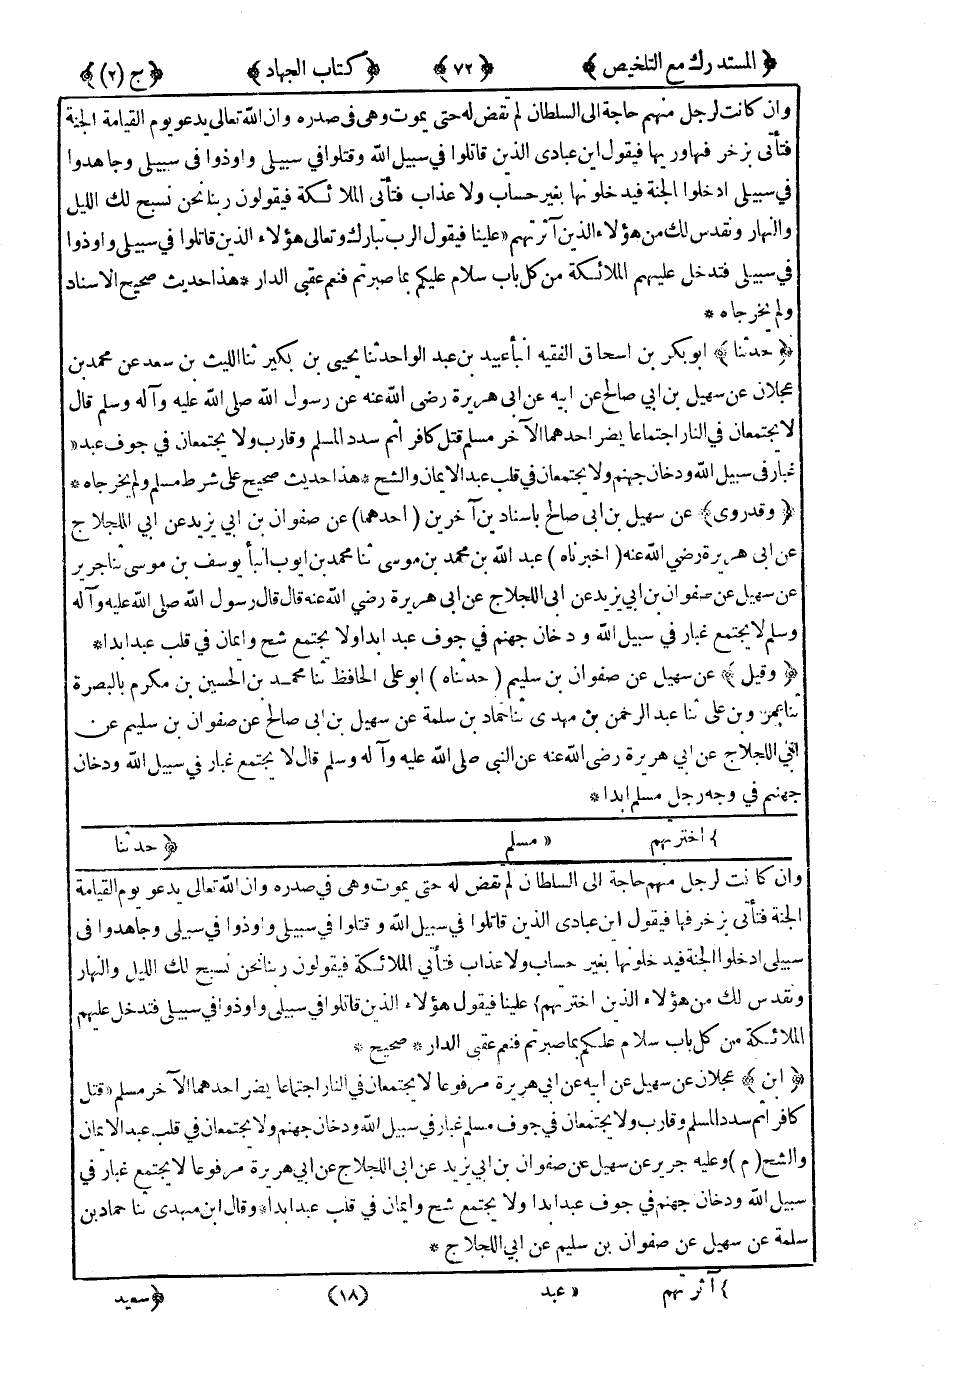 ﴿ المستدرك مع التلخيص ﴾ ﴿ ٧٢ ﴾ ﴿ كتاب الجهاد ﴾ ﴿ ج (٢) ﴾
وان كانت لرجل منهم حاجة الى السلطان لم تقض له حتى يموت وهى فى صدره وان الله تعالى يدعو يوم القيامة الجنة
فتأتى بزخرفها وريها فيقول اين عبادى الذين قاتلوا في سبيل الله وقتلوا في سبيلى واوذوا فى سبيلى وجاهدوا
في سبيلى ادخلوا الجنة فيدخلونها بغير حساب ولا عذاب فتأتى الملائكة فيقولون ربنا نحن نسبح لك الليل
والنهار ونقدس لك من هؤلاء الذين آثرتهم «علينا فيقول الرب تبارك وتعالى هؤلاء الذين قاتلوا في سبيلى واوذوا
في سبيلى فتدخل عليهم الملائكة من كل باب سلام عليكم بما صبرتم فنعم عقبى الدار * هذا حديث صحيح الاسناد
ولم يخرجاه *
﴿ حدثنا ﴾ ابو بكر بن اسحاق الفقيه انبأ عبيد بن عبد الواحد ثنا يحيى بن بكير ثنا الليث بن سعد عن محمد بن
عجلان عن سهيل بن ابي صالح عن ابيه عن ابى هريرة رضى الله عنه عن رسول الله صلى الله عليه وآله وسلم قال
لا يجتمعان في النار اجتماعا يضر احدهما الآخر مسلم قتل كافر اثم سدد المسلم وقارب ولا يجتمعان في جوف عبد «
غبار فى سبيل الله ودخان جهنم ولا يجتمعان في قلب عبد الايمان والشح * هذا حديث صحيح على شرط مسلم ولم يخرجاه *
﴿ وقد روى ﴾ عن سهيل بن ابى صالح باسنادين آخرين ( احدهما ) عن صفوان بن ابي يزيد عن ابي اللجلاج
عن ابى هريرة رضي الله عنه ( اخبرناه ) عبد الله بن محمد بن موسى ثنا محمد بن ايوب انبأ يوسف بن موسى ثنا جرير
عن سهيل عن صفوان بن ابي يزيد عن ابى اللجلاج عن ابى هريرة رضي الله عنه قال قال رسول الله صلى الله عليه وآله
وسلم لا يجتمع غبار في سبيل الله ودخان جهنم في جوف عبد ابدا ولا يجتمع شح وايمان في قلب عبد ابدا *
﴿ وقيل ﴾ عن سهيل عن صفوان بن سليم ( حدثناه ) ابو على الحافظ ثنا محمد بن الحسين بن مكرم بالبصرة
ثنا عمرو بن على ثنا عبد الرحمن بن مهدى ثنا حماد بن سلمة عن سهيل بن ابى صالح عن صفوان بن سليم عن
ابى اللجلاج عن ابي هريرة رضى الله عنه عن النبى صلى الله عليه وآله وسلم قال لا يجتمع غبار في سبيل الله ودخان
جهنم في وجه رجل مسلم ابدا *
} اخترتهم « مسلم ﴿ حدثنا
وان كانت لرجل منهم حاجة الى السلطان لم تقض له حتى يموت وهى في صدره وان الله تعالى يدعو يوم القيامة
الجنة فتأتى بزخرفها فيقول اين عبادى الذين قاتلوا في سبيل الله وقتلوا في سبيلى واوذوا في سبيلى وجاهدوا فى
سبيلى ادخلوا الجنة فيدخلونها بغير حساب ولا عذاب فتأتي الملائكة فيقولون ربنا نحن نسبح لك الليل والنهار
ونقدس لك من هؤلاء الذين اخترتهم} علينا فيقول هؤلاء الذين قاتلوا في سبيلى واوذوا في سبيلى فتدخل عليهم
الملائكة من كل باب سلام عليكم بما صبرتم فنعم عقبى الدار * صحيح *
﴿ ابن ﴾ عجلان عن سهيل عن ابيه عن ابي هريرة مرفوعا لا يجتمعان في النار اجتماعا يضر احدهما الآخر مسلم «قتل
كافر اثم سدد المسلم وقارب ولا يجتمعان في جوف مسلم غبار في سبيل الله ودخان جهنم ولا يجتمعان في قلب عبد الايمان
والشح ( م ) وعليه جرير عن سهيل عن صفوان بن ابي يزيد عن ابى اللجلاج عن ابي هريرة مرفوعا لا يجتمع غبار في
سبيل الله ودخان جهنم في جوف عبد ابدا ولا يجتمع شح وايمان في قلب عبد ابدا * وقال ابن مهدى ثنا حماد بن
سلمة عن سهيل عن صفوان بن سليم عن ابي اللجلاج *
} آثرتهم « عبد (١٨) ﴿ سعيد